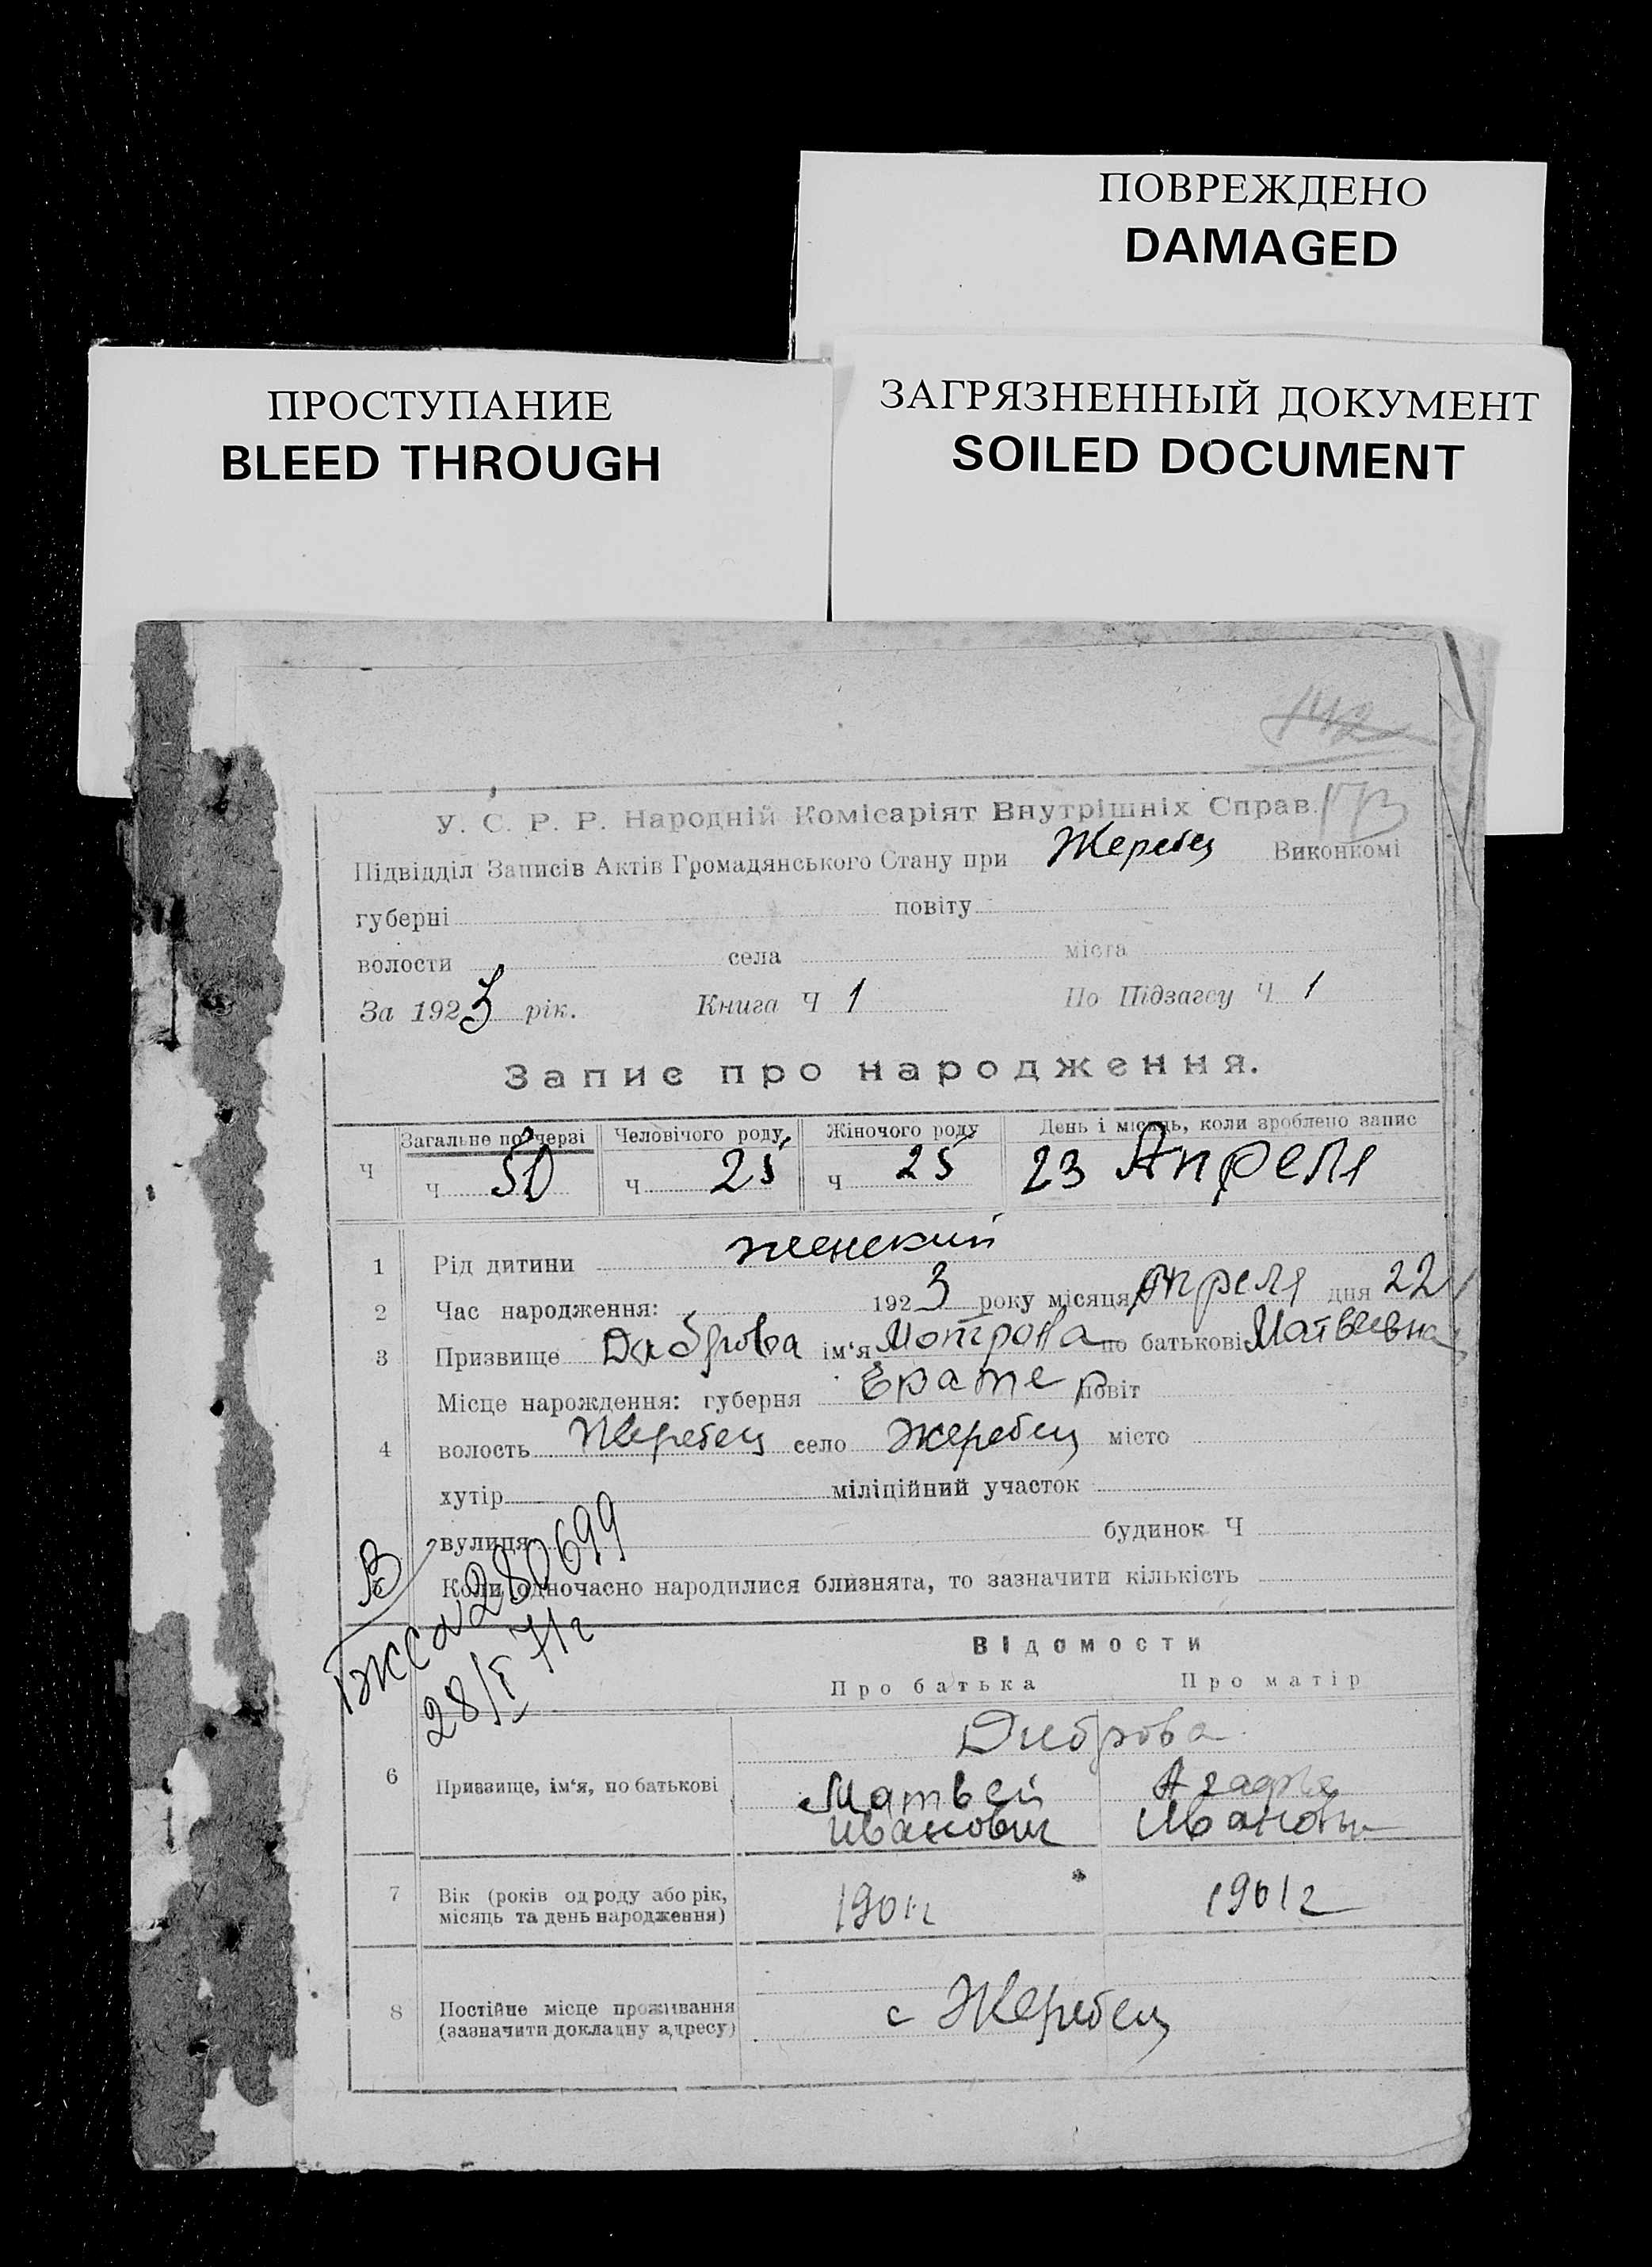 ПОВРЕЖДЕНО
DAMAGED
ПРОСТУПАНИЕ
BLEED THROUGH
ЗАГРЯЗНЕННЫЙ ДОКУМЕНТ
SOILED DOCUMENT
142
У. С. Р. Р. Народній Комісаріят Внутрішніх Справ.
Підвідділ Записів Актів Громадянського Стану при Жеребец Виконкомі
губерні повіту
волости села міста
За 1923 рік. Книга Ч 1 По Підзагсу Ч 1
Запис про народження.
Ч Загальне по черзі Человічого роду Жіночого роду День і місяць, коли зроблено запис
Ч 50 Ч 25 Ч 25 23 Апреля
1 Рід дитини женский
2 Час народження: 1923 року місяця Апреля дня 22
3 Призвище Диброва ім'я Мотрона по батькові Матвеевна
Місце народження: губерня повіт
4 волость Жеребец село Жеребец місто
хутір міліційний участок
вулиця будинок Ч
Коли одночасно народилися близнята, то зазначити кількість
280699
28/I 71г
Відомости
Про батька Про матір
Диброва
6 Призвище, ім'я, по батькові Матвей Агафия
Иванович Ивановна
7 Вік (років од роду або рік, місяць та день народження) 1901г 1901г
8 Постійне місце проживання (зазначити докладну адресу) с Жеребец